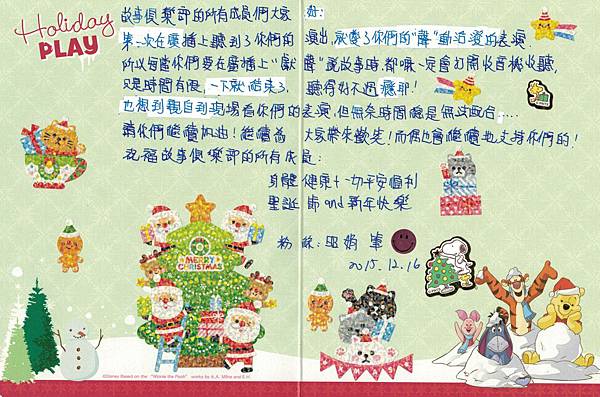 Holiday
PLAY
故事俱樂部的所有成員們大家好:
第一次在廣播上聽到了你們的演出,就愛了你們的"聲"動活潑的表演
所以每當你們要在廣播上"獻聲"說故事時,都一定會打開收音機收聽,
只是時間有限,一下就結束了,聽得好不過癮耶!
也想到親自到現場看你們的表演,但無奈時間總是無法配合....
請你們繼續加油!繼續為大家帶來歡樂!而我也會繼續支持你們的!
祝福故事俱樂部的所有成員:
身體健康+一切平安順利
聖誕節and新年快樂
粉絲:
2015.12.16
MERRY
CHRISTMAS
©Disney Based on the "Winnie the Pooh" works by A.A. Milne and E.H.